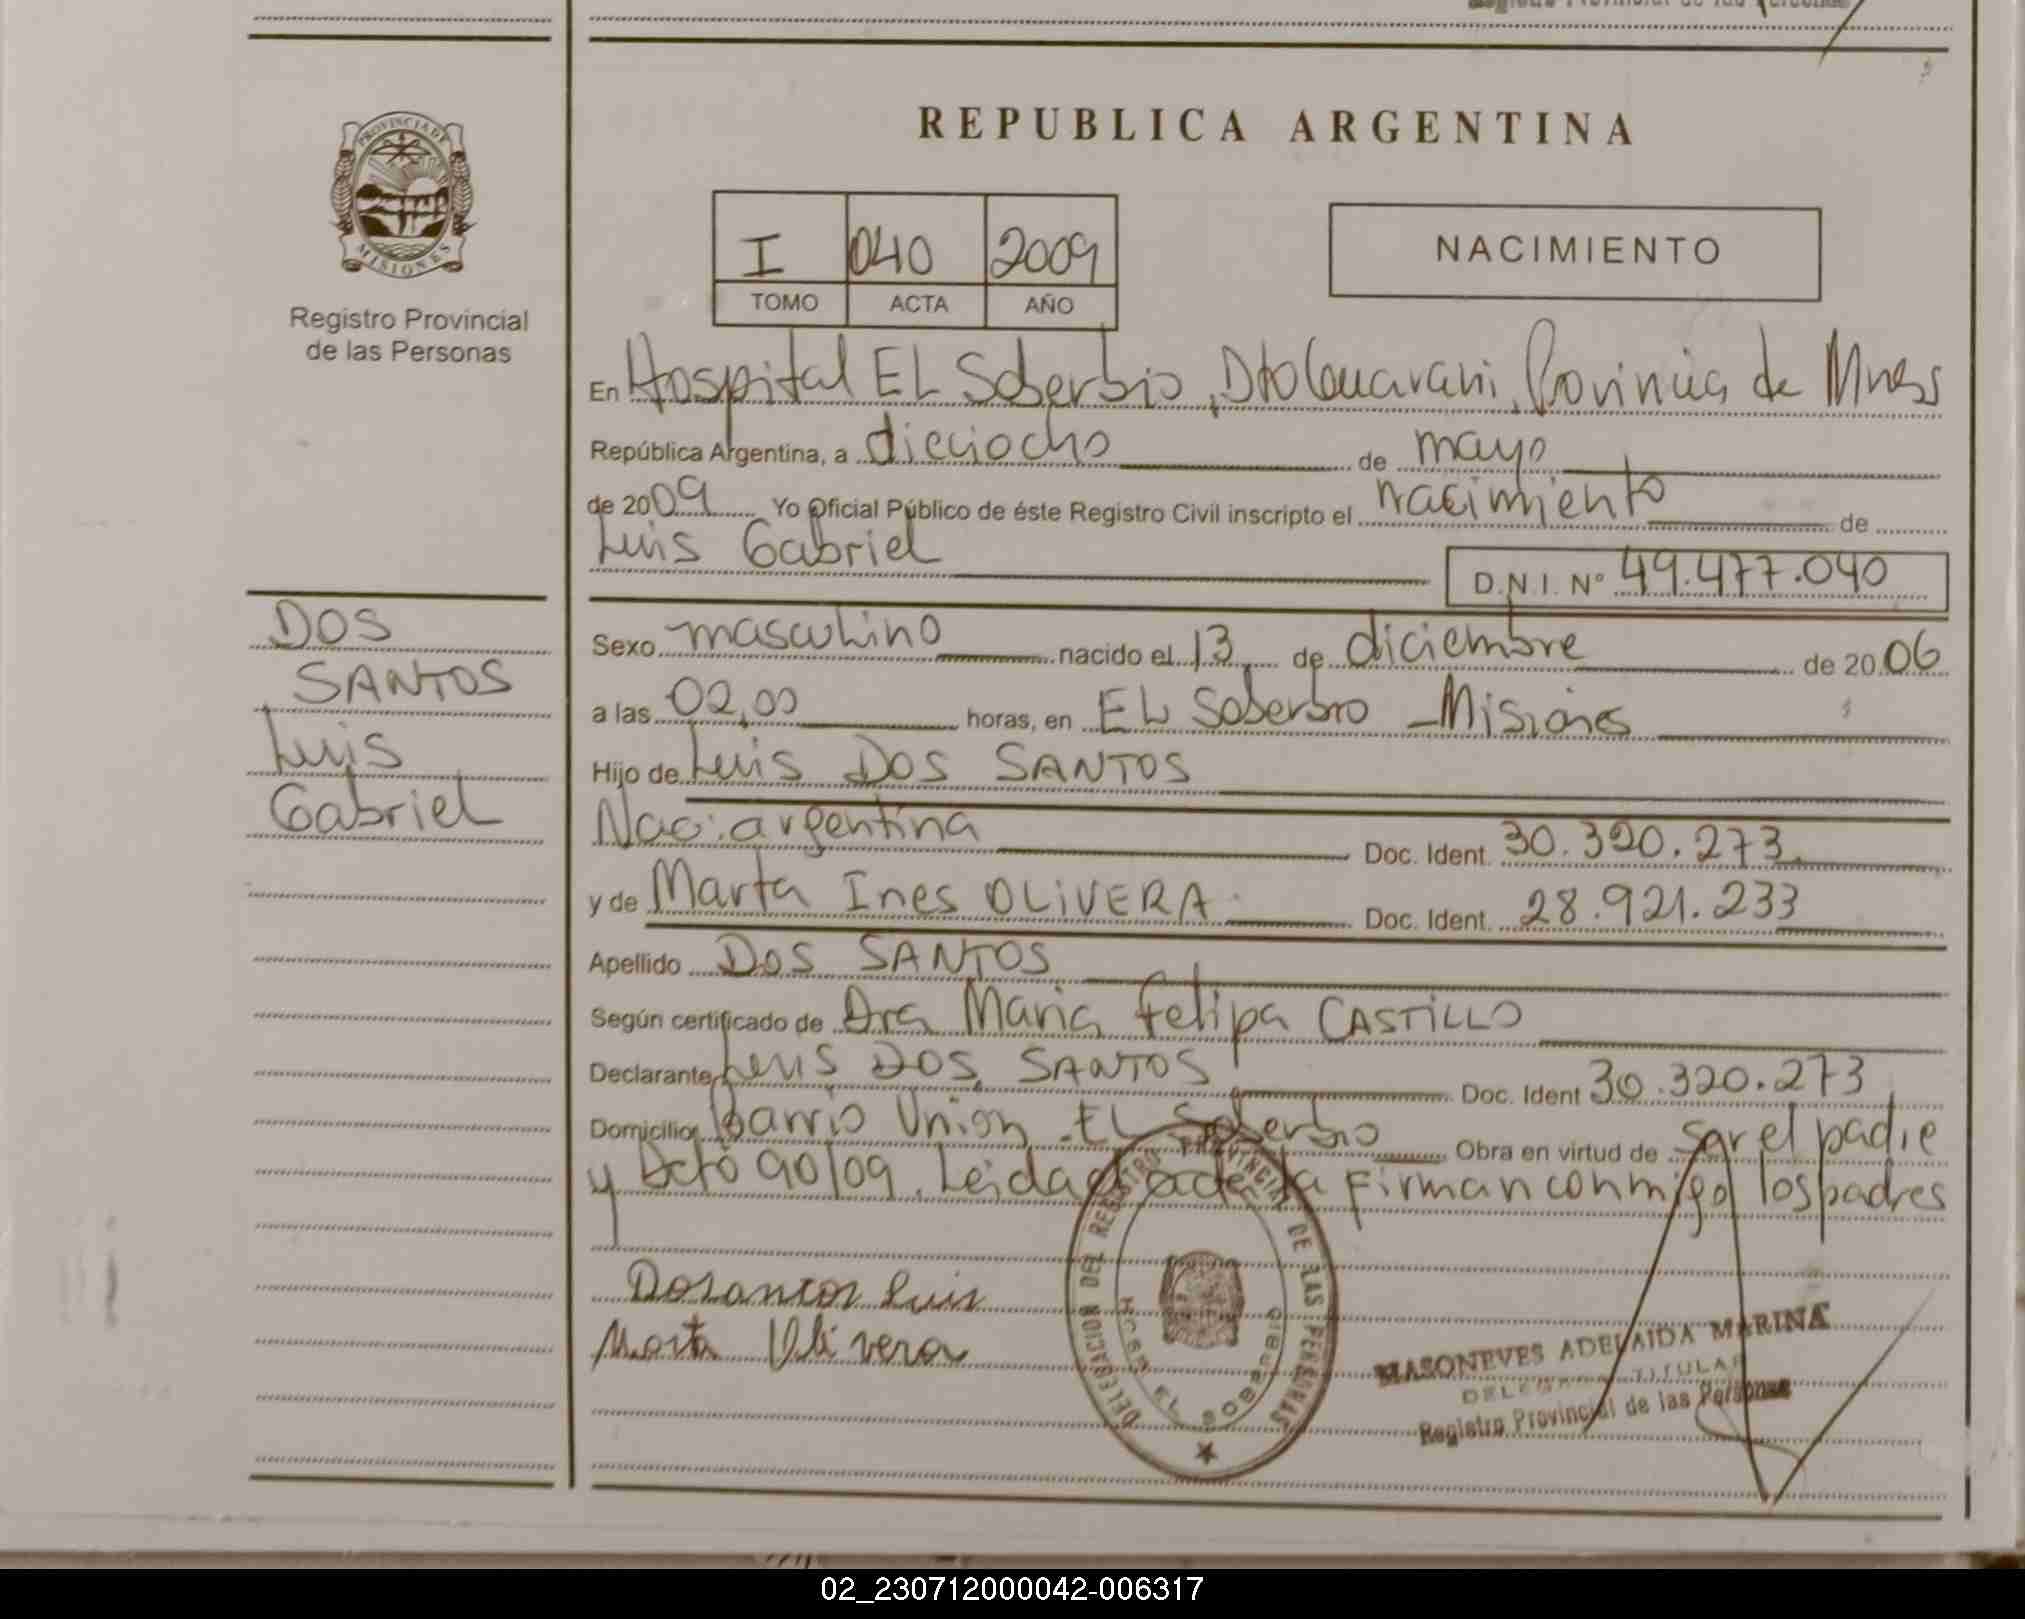 REPUBLICA ARGENTINA
PROVINCIA DE
MISIONES
Registro Provincial
de las Personas
I 040 2009
TOMO ACTA AÑO
NACIMIENTO
En Hospital EL Soberbio, Dto Guarani, Provincia de Mnes
República Argentina, a dieciocho de mayo
de 2009 Yo Oficial Público de éste Registro Civil inscripto el nacimiento de
Luis Gabriel D.N.I. Nº 49.477.040
DOS
SANTOS
Luis
Gabriel
Sexo masculino nacido el 13 de diciembre de 2006
a las 02,00 horas, en EL Soberbio - Misiones
Hijo de Luis DOS SANTOS
Nac: argentina Doc. Ident. 30.320.273
y de Marta Ines OLIVERA Doc. Ident. 28.921.233
Apellido DOS SANTOS
Según certificado de Dra Maria Felipa CASTILLO
Declarante Luis DOS SANTOS Doc. Ident 30.320.273
Domicilio Barrio Union - EL Soberbio Obra en virtud de ser el padre
y Dcto 90/09. Leida el acta firman conmigo los padres
Dosantos Luis
Marta Olivera
DELEGACION DEL REGISTRO PROVINCIAL DE LAS PERSONAS
EL SOBERBIO
MASONEVES ADELAIDA MARINA
DELEGADA TITULAR
Registro Provincial de las Personas
02_230712000042-006317